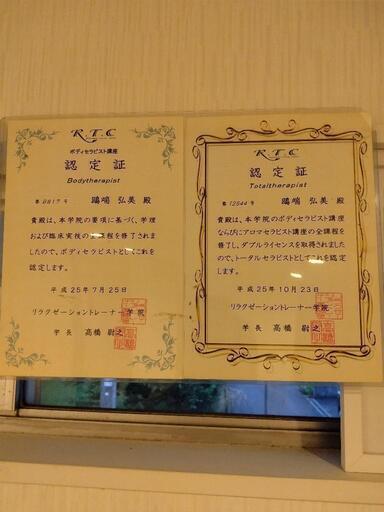 R.T.C
ボディセラピスト講座
認定証
Bodytherapist
弘美 殿
貴殿は、本学院の要項に基づき、学理
および臨床実技の全課程を修了されま
したので、ボディセラピストとしてこれを
認定します。
平成25年7月25日
リラクゼーショントレーナー学院
学長 高橋 尉之
R.T.C
認定証
Totaltherapist
第12544号
弘美 殿
貴殿は、本学院のボディセラピスト講座
ならびにアロマセラピスト講座の全課程を
修了し、ダブルライセンスを取得されました
ので、トータルセラピストとしてこれを認定
します。
平成25年10月23日
リラクゼーショントレーナー学院
学長 高橋 尉之